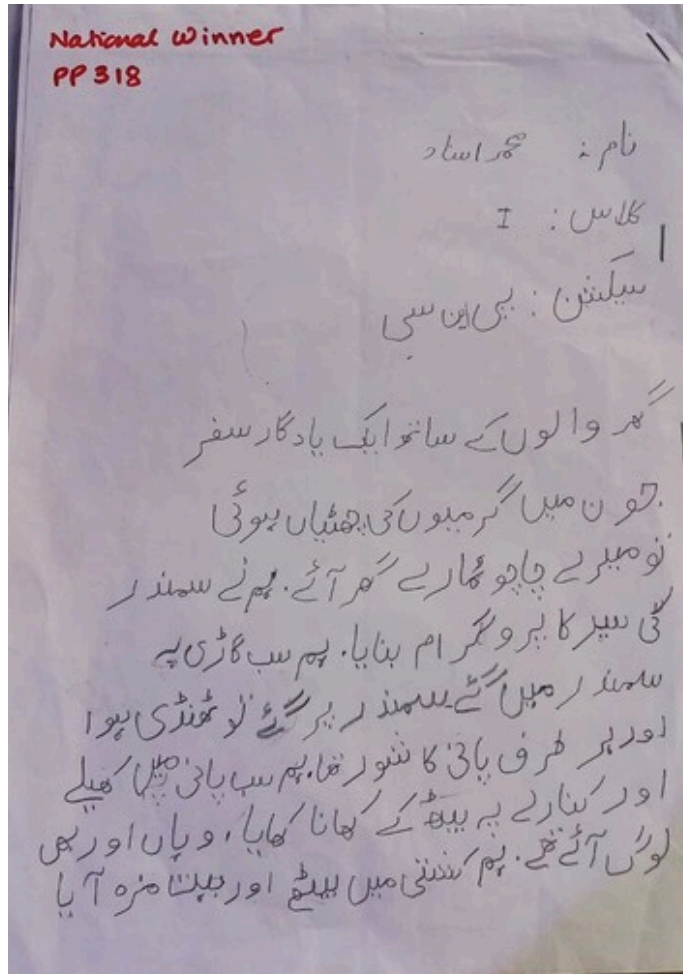 National Winner
PP 318
نام: محمد اسناد
کلاس: I
سیکشن: پی این سی
گھر والوں کے ساتھ ایک یادگار سفر
جون میں گرمیوں کی چھٹیاں ہوئی
تو میرے چاچو ہمارے گھر آئے. ہم نے سمندر
کی سیر کا پروگرام بنایا. ہم سب گاڑی پہ
سمندر میں گئے سمندر پر گئے تو ٹھنڈی ہوا
اور ہر طرف پانی کا شور تھا. ہم سب پانی میں کھیلے
اور کنارے پہ بیٹھ کے کھانا کھایا. وہاں اور بھی
لوگ آئے تھے. ہم کشتی میں بیٹھے اور بہت مزہ آیا